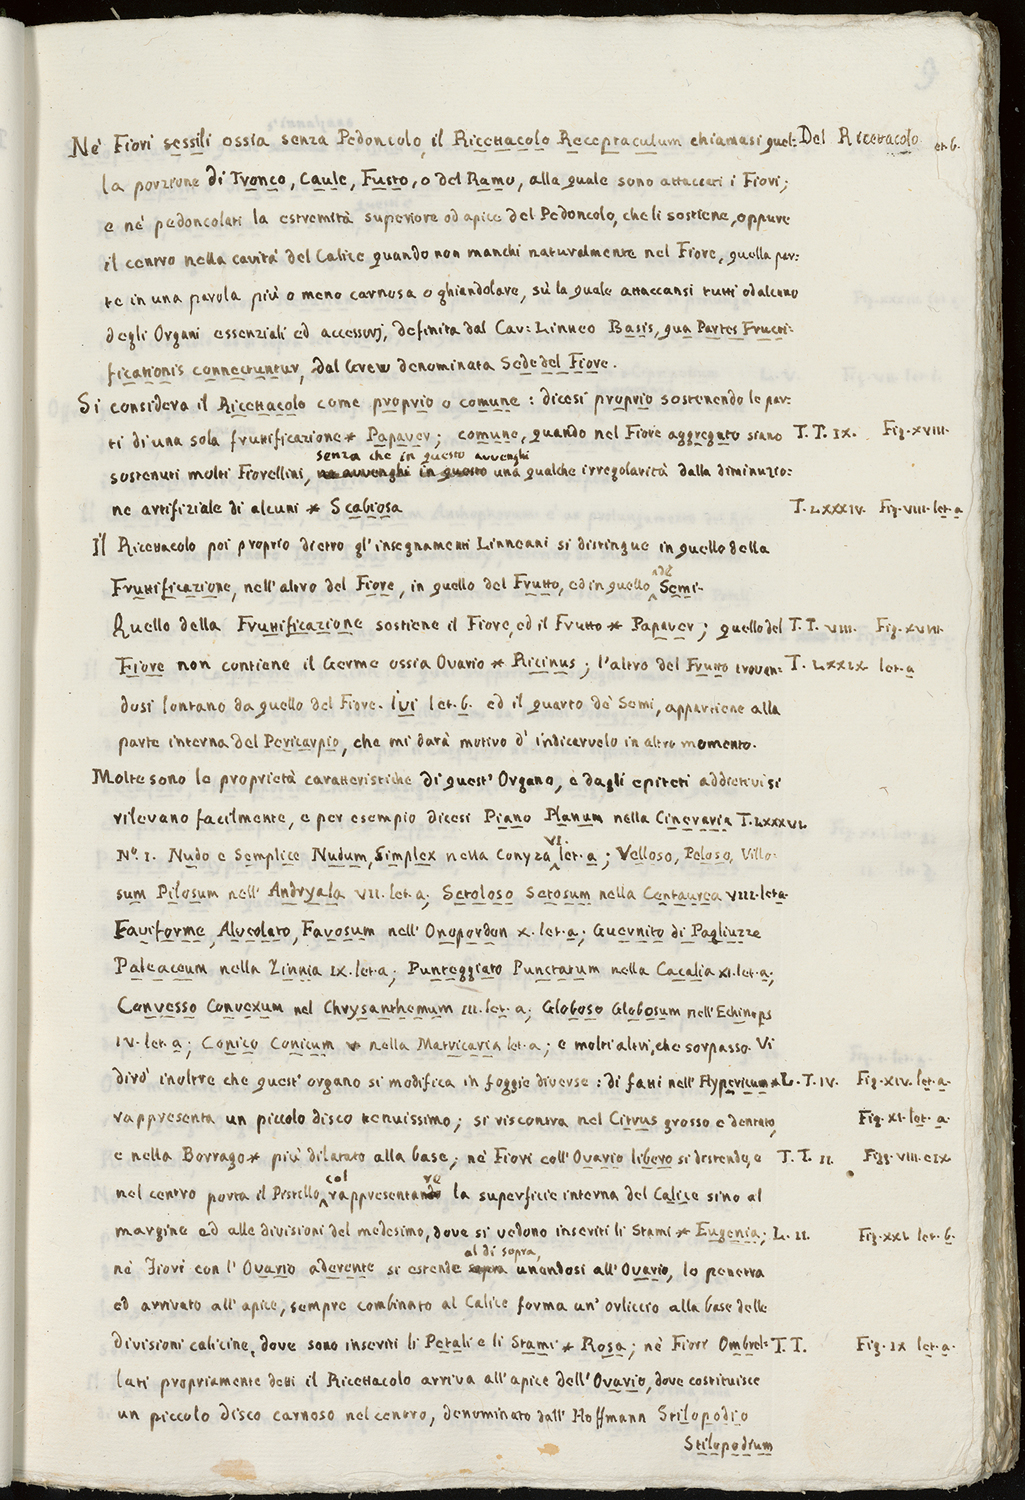 9
Ne' Fiori sessili ossia senza Pedoncolo, il Ricettacolo Receptaculum chiamasi quel: Del Ricettacolo et. 6.
la porzione di Tronco, Caule, Fusto, o del Ramo, alla quale sono attaccati i Fiori;
e ne' pedoncolati la estremità superiore od apice del Pedoncolo, che li sostiene, oppure
il centro nella cavità del Calice quando non manchi naturalmente nel Fiore, quella par:
te in una parola più o meno carnosa o ghiandolare, sù la quale attaccansi tutti od alcuno
degli Organi essenziali ed accessorj, definita dal Cav: Linneo Basis, qua Partes Fructi:
ficationis connectuntur, dal Grew denominata Sede del Fiore.
Si considera il Ricettacolo come proprio o comune: dicesi proprio sostenendo le par:
ti di una sola fruttificazione * Papaver; comune, quando nel Fiore aggregato siano T. T. IX. Fig. XVIII.
senza che in questo avvenghi
sostenuti molti Fiorellini, ne avvenghi in questo una qualche irregolarità dalla diminuzio:
ne artifiziale di alcuni * Scabiosa T. LXXXIV. Fig. VIII. let. a
Il Ricettacolo poi proprio dietro gl'insegnamenti Linneani si distingue in quello della
Fruttificazione, nell'altro del Fiore, in quello del Frutto, ed in quello de' Semi.
Quello della Fruttificazione sostiene il Fiore, ed il Frutto * Papaver; quello del T. T. VIII. Fig. XVIII.
Fiore non contiene il Germe ossia Ovario * Ricinus; l'altro del Frutto trovan: T. LXXIX let. a
dosi lontano da quello del Fiore. Ivi let. 6. ed il quarto de' Semi, appartiene alla
parte interna del Pericarpio, che mi darà motivo d'indicarvelo in altro momento.
Molte sono le proprietà caratteristiche di quest'Organo, e dagli epiteti addiettivi si
rilevano facilmente, e per esempio dicesi Piano Planum nella Cineraria T. LXXXVI.
VI.
No. I. Nudo e Semplice Nudum, Simplex nella Conyza let. a; Velloso, Peloso, Villo-
sum Pilosum nell'Andryala VII. let. a; Setoloso Setosum nella Centaurea VIII. let. a
Faviforme, Alveolato, Favosum nell'Onopordon X. let. a; Guernito di Pagliuzze
Paleaceum nella Zinnia IX. let. a; Punteggiato Punctatum nella Cacalia XI. let. a;
Convesso Convexum nel Chrysanthemum III. let. a; Globoso Globosum nell'Echinops
IV. let. a; Conico Conicum V nella Matricaria let. a; e molti altri, che sorpasso. Vi
dirò inoltre che quest'organo si modifica in foggie diverse: di fatti nell'Hypericum * L. T. IV. Fig. XIV. let. a.
rappresenta un piccolo disco tenuissimo; si riscontra nel Citrus grosso e dentato, Fig. XI. let. a.
e nella Borrago * più dilatato alla base; ne' Fiori coll'Ovario libero si distende, e T. T. II. Figg. VIII. e IX.
col re
nel centro porta il Pistello, rappresentando la superficie interna del Calice sino al
margine ed alle divisioni del medesimo, dove si vedono inseriti li Stami * Eugenia; L. II. Fig. XXI. let. 6.
al di sopra,
ne' Fiori con l'Ovario aderente si estende sopra unendosi all'Ovario, lo penetra
ed arrivato all'apice, sempre combinato al Calice forma un'orliccio alla base delle
divisioni calicine, dove sono inseriti li Petali e li Stami * Rosa; ne' Fiori Ombrel: T. T. Fig. IX let. a.
lati propriamente detti il Ricettacolo arriva all'apice dell'Ovario, dove costituisce
un piccolo disco carnoso nel centro, denominato dall'Hoffmann Stilopodio
Stilopodium